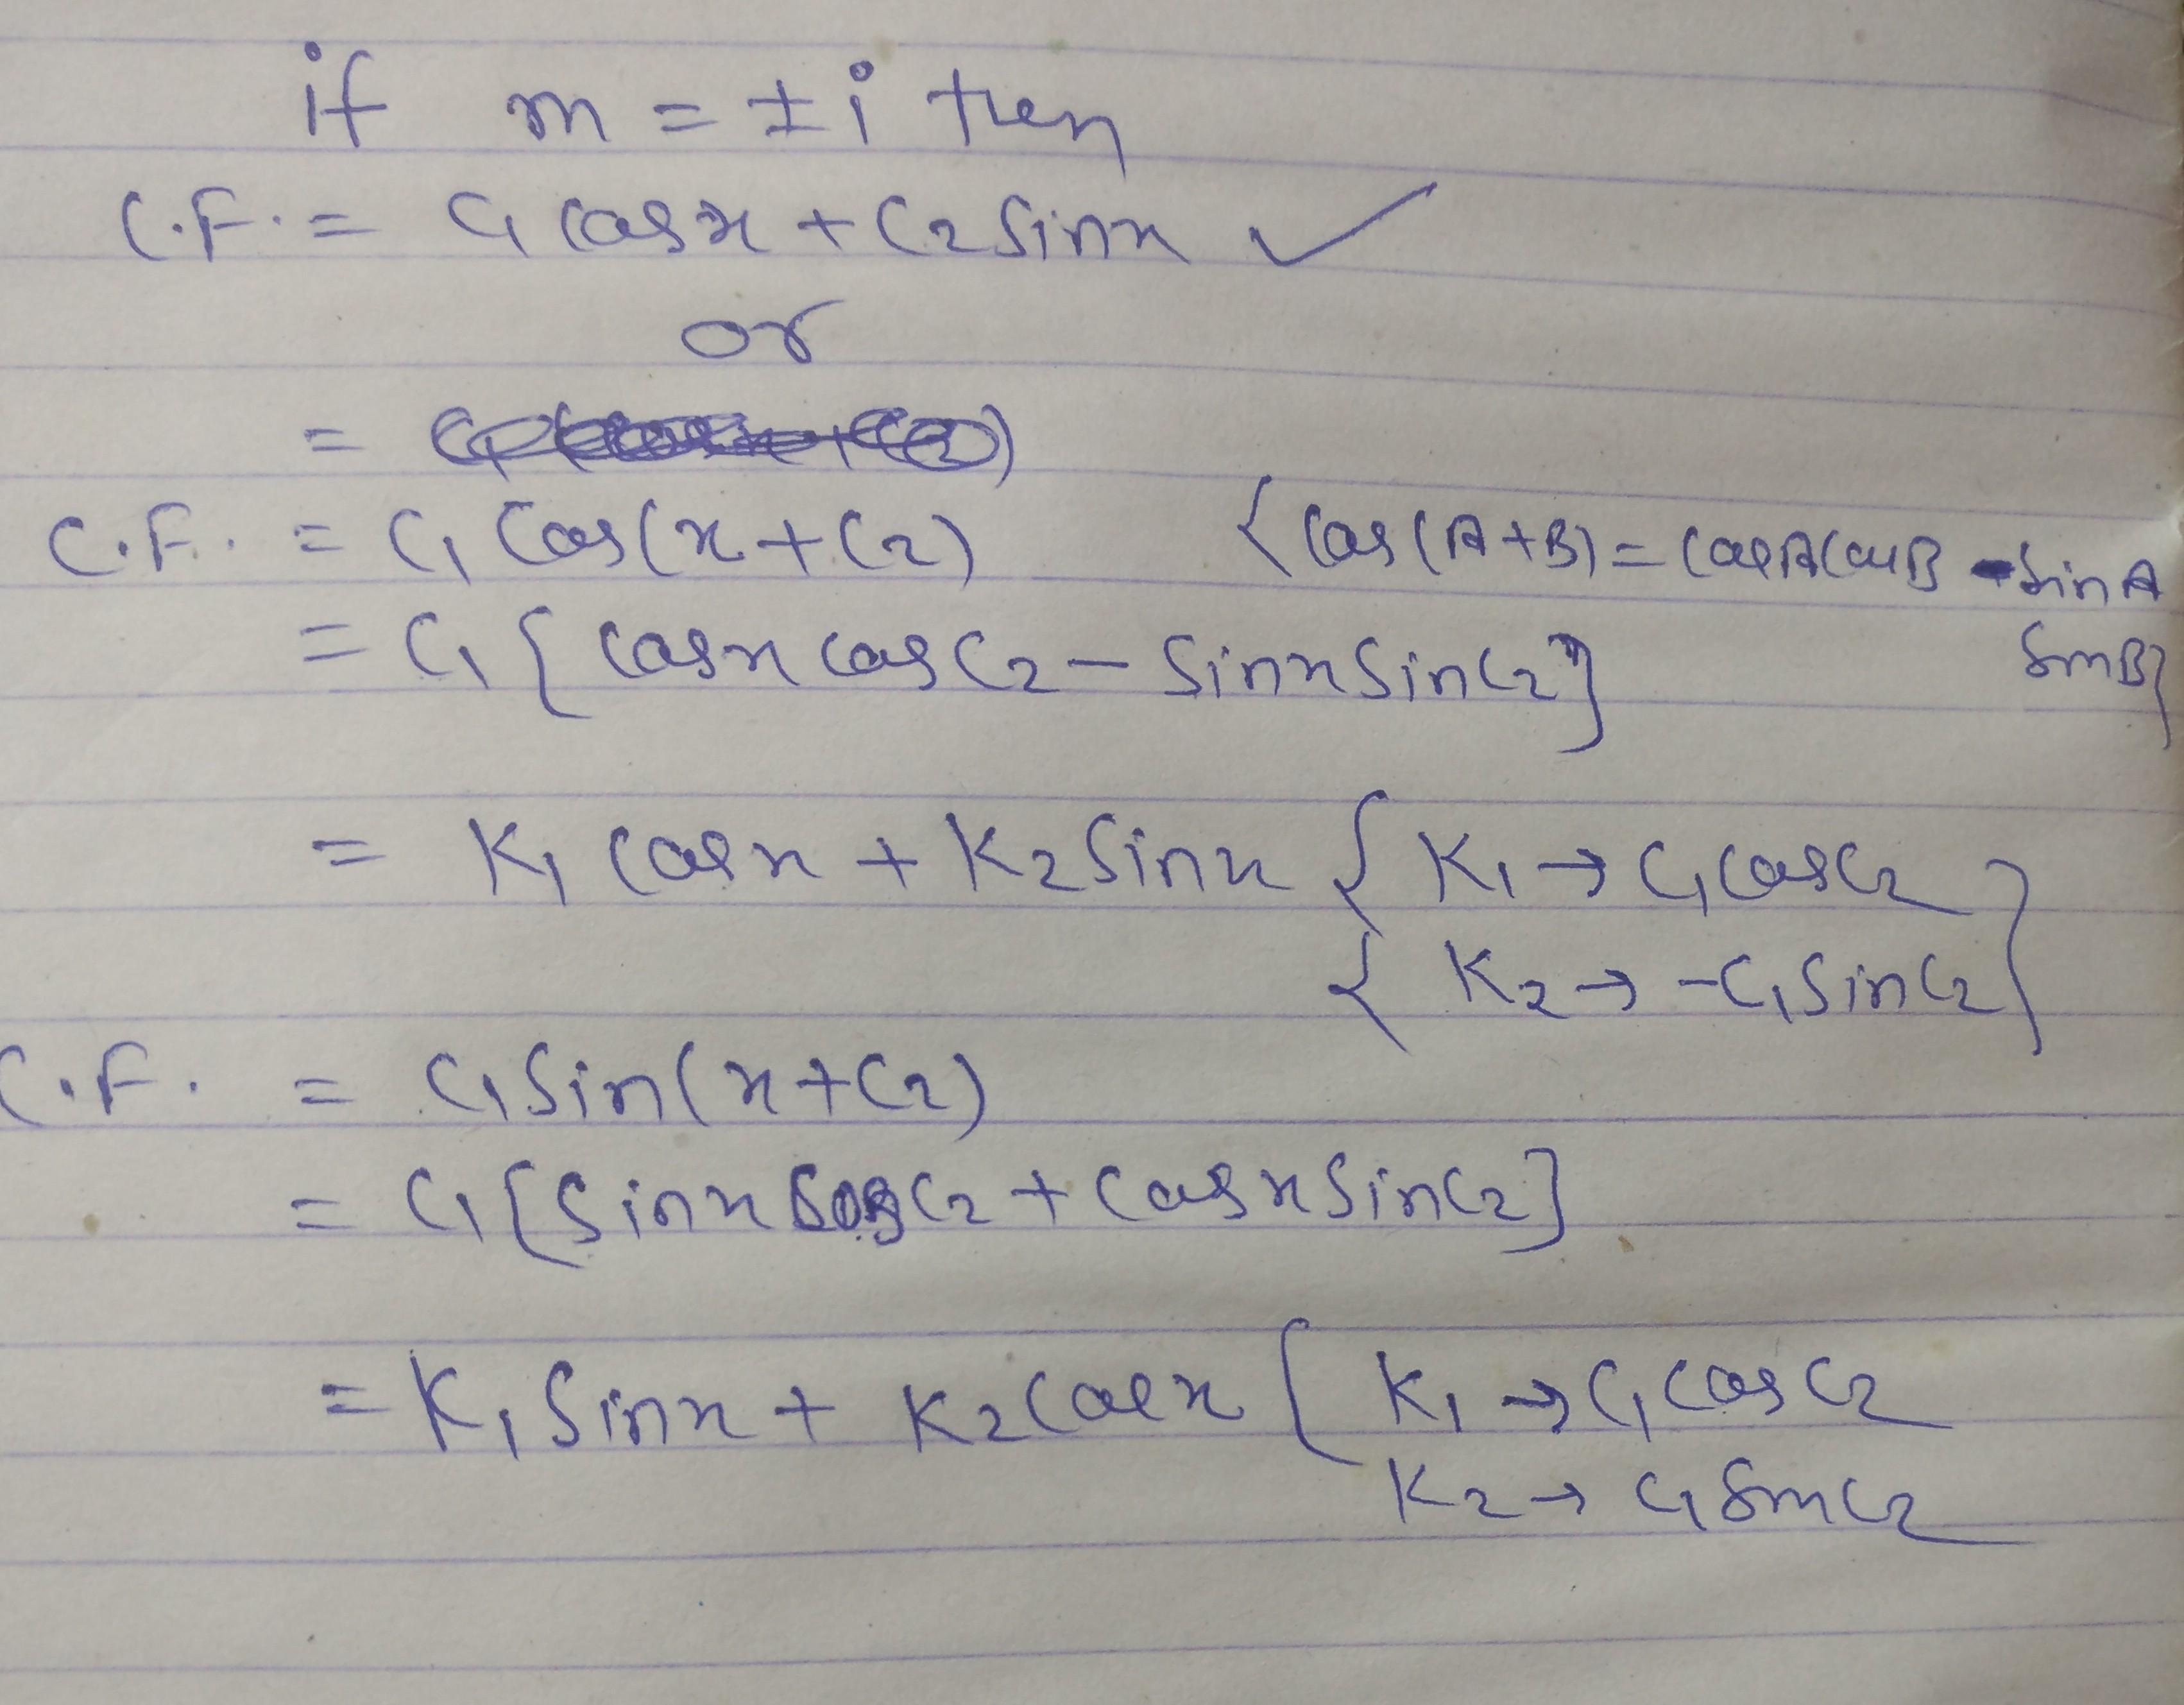 if m = ±i then
C.F. = C1 Cosx + C2 Sinx ✓
or
=
C.F. = C1 Cos(x+C2) {Cos(A+B) = CosA CosB - Sin A
SinB}
= C1 { Cosx Cos C2 - Sinx Sin C2}
= K1 Cosx + K2 Sinx { K1 → C1 Cos C2 }
{ K2 → -C1 Sin C2 }
C.F. = C1 Sin(x+C2)
= C1 [Sinx Cos C2 + Cosx Sin C2]
= K1 Sinx + K2 Cosx { K1 → C1 Cos C2
K2 → C1 Sin C2